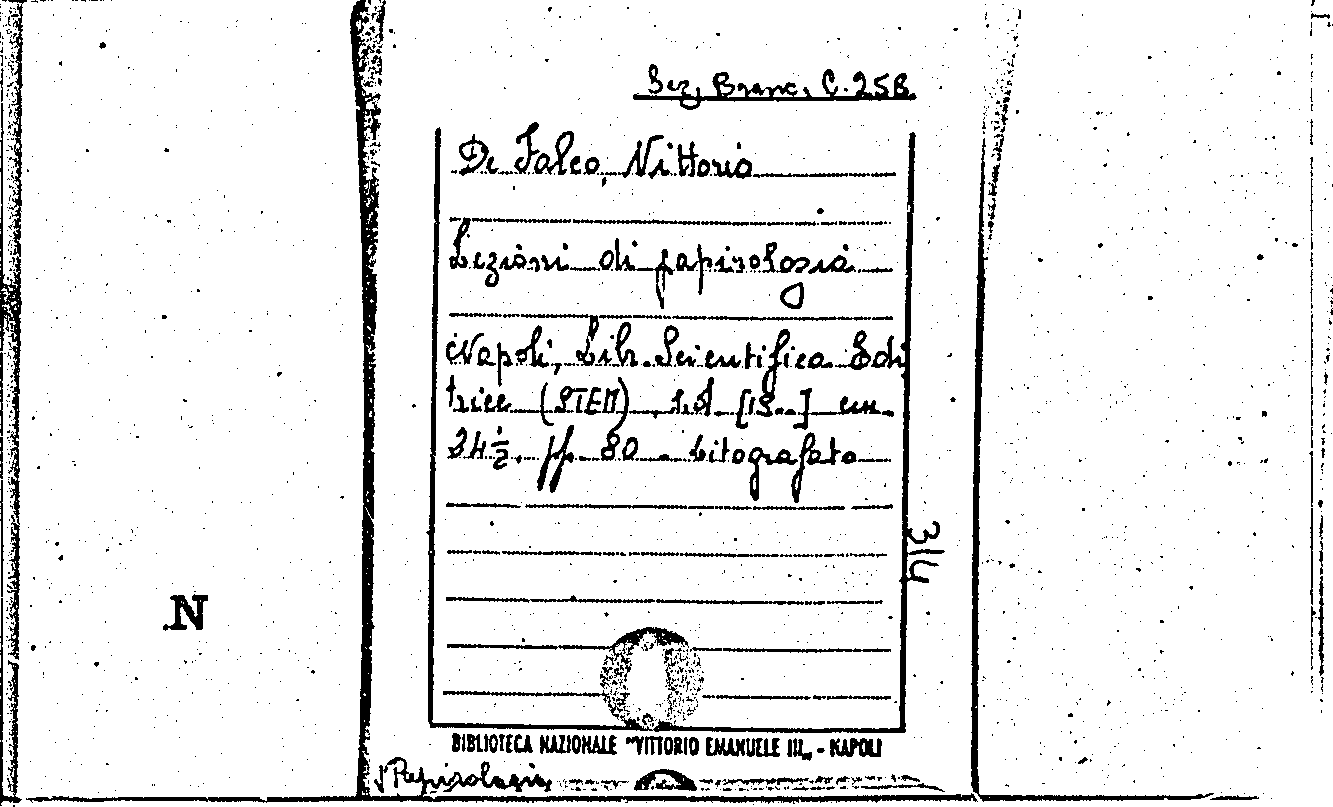 Sez. Branc. C. 25B
De Falco, Vittorio
Lezioni di papirologia
Napoli, Libr. Scientifica Edi
trice (STEM) s.d. [19..] cm.
24½. pp. 80 - Litografato
3/4
N
BIBLIOTECA NAZIONALE "VITTORIO EMANUELE III„ - NAPOLI
Papirologia